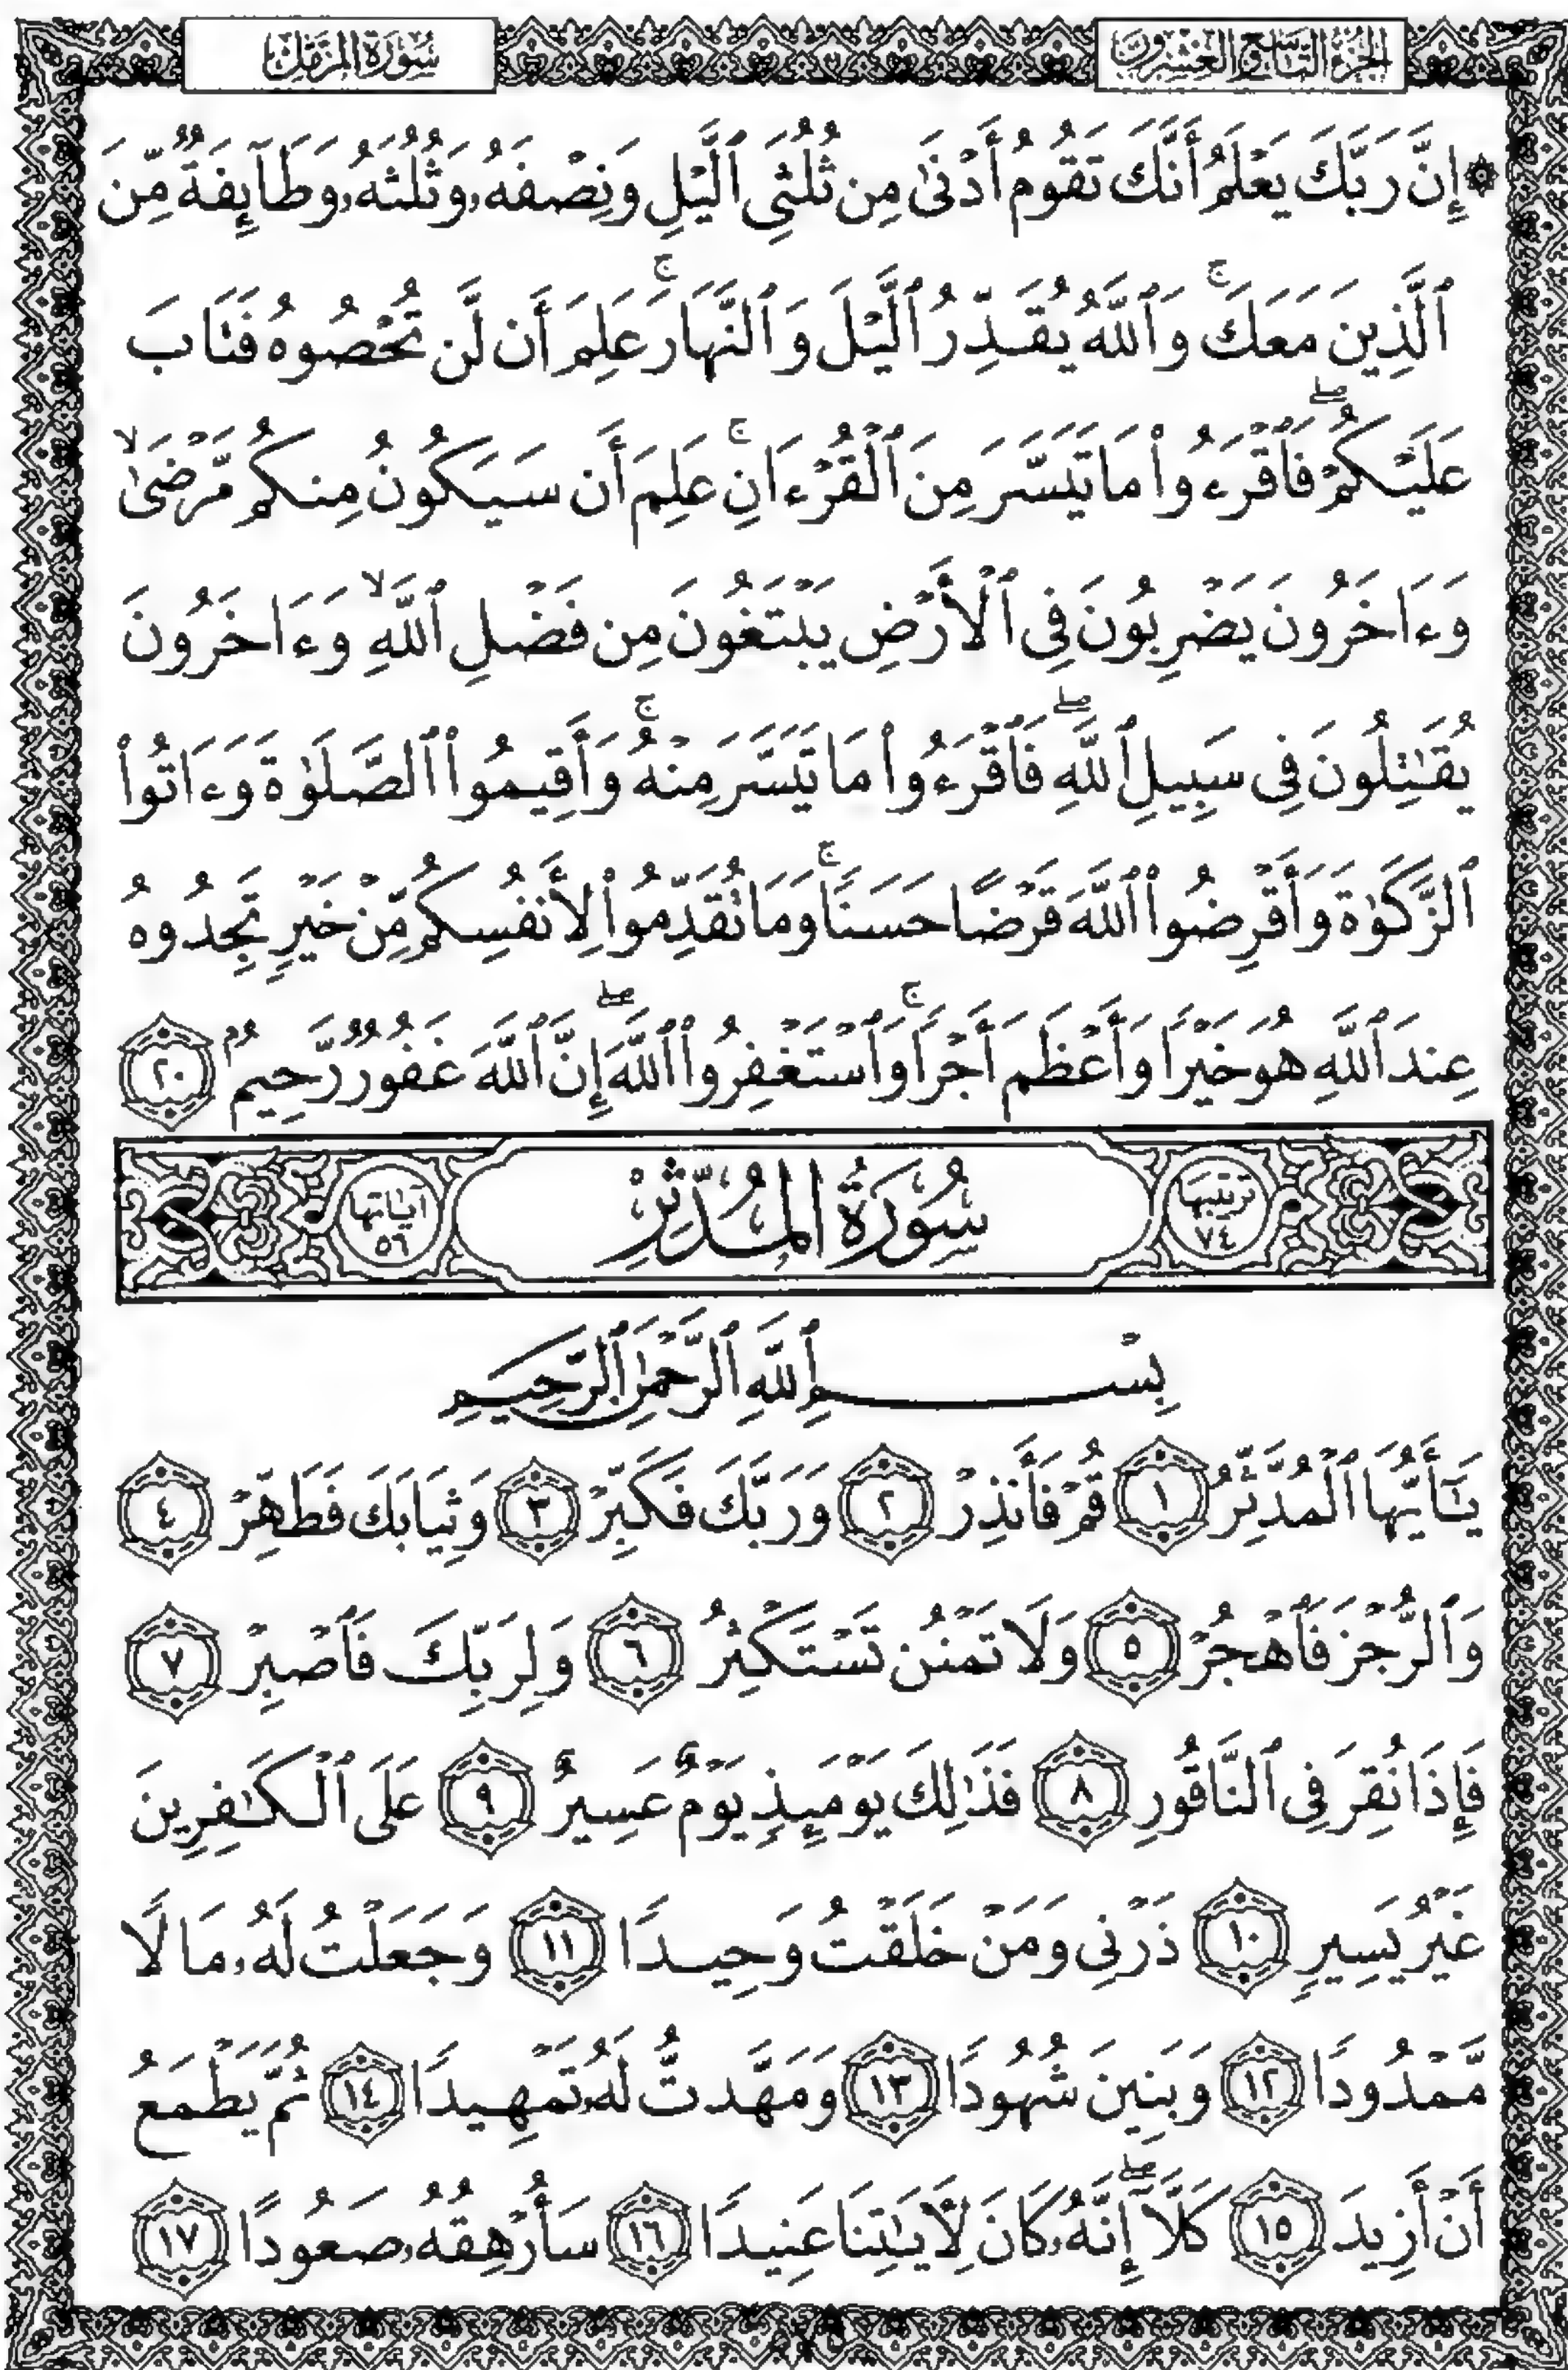 الجزء التاسع والعشرون
سورة المزمل
۞ إِنَّ رَبَّكَ يَعْلَمُ أَنَّكَ تَقُومُ أَدْنَىٰ مِن ثُلُثَىِ ٱلَّيْلِ وَنِصْفَهُۥ وَثُلُثَهُۥ وَطَآئِفَةٌ مِّنَ
ٱلَّذِينَ مَعَكَ ۚ وَٱللَّهُ يُقَدِّرُ ٱلَّيْلَ وَٱلنَّهَارَ ۚ عَلِمَ أَن لَّن تُحْصُوهُ فَتَابَ
عَلَيْكُمْ ۖ فَٱقْرَءُوا۟ مَا تَيَسَّرَ مِنَ ٱلْقُرْءَانِ ۚ عَلِمَ أَن سَيَكُونُ مِنكُم مَّرْضَىٰ ۙ
وَءَاخَرُونَ يَضْرِبُونَ فِى ٱلْأَرْضِ يَبْتَغُونَ مِن فَضْلِ ٱللَّهِ ۙ وَءَاخَرُونَ
يُقَٰتِلُونَ فِى سَبِيلِ ٱللَّهِ ۖ فَٱقْرَءُوا۟ مَا تَيَسَّرَ مِنْهُ ۚ وَأَقِيمُوا۟ ٱلصَّلَوٰةَ وَءَاتُوا۟
ٱلزَّكَوٰةَ وَأَقْرِضُوا۟ ٱللَّهَ قَرْضًا حَسَنًا ۚ وَمَا تُقَدِّمُوا۟ لِأَنفُسِكُم مِّنْ خَيْرٍ تَجِدُوهُ
عِندَ ٱللَّهِ هُوَ خَيْرًا وَأَعْظَمَ أَجْرًا ۚ وَٱسْتَغْفِرُوا۟ ٱللَّهَ ۖ إِنَّ ٱللَّهَ غَفُورٌ رَّحِيمٌۢ ٢٠
ترتيبها ٧٤ سُورَةُ المُدَّثِّرْ آياتها ٥٦
بِسْمِ ٱللَّهِ ٱلرَّحْمَٰنِ ٱلرَّحِيمِ
يَٰٓأَيُّهَا ٱلْمُدَّثِّرُ ١ قُمْ فَأَنذِرْ ٢ وَرَبَّكَ فَكَبِّرْ ٣ وَثِيَابَكَ فَطَهِّرْ ٤
وَٱلرُّجْزَ فَٱهْجُرْ ٥ وَلَا تَمْنُن تَسْتَكْثِرُ ٦ وَلِرَبِّكَ فَٱصْبِرْ ٧
فَإِذَا نُقِرَ فِى ٱلنَّاقُورِ ٨ فَذَٰلِكَ يَوْمَئِذٍ يَوْمٌ عَسِيرٌ ٩ عَلَى ٱلْكَٰفِرِينَ
غَيْرُ يَسِيرٍ ١٠ ذَرْنِى وَمَنْ خَلَقْتُ وَحِيدًا ١١ وَجَعَلْتُ لَهُۥ مَالًا
مَّمْدُودًا ١٢ وَبَنِينَ شُهُودًا ١٣ وَمَهَّدتُّ لَهُۥ تَمْهِيدًا ١٤ ثُمَّ يَطْمَعُ
أَنْ أَزِيدَ ١٥ كَلَّآ ۖ إِنَّهُۥ كَانَ لِأَيَٰتِنَا عَنِيدًا ١٦ سَأُرْهِقُهُۥ صَعُودًا ١٧